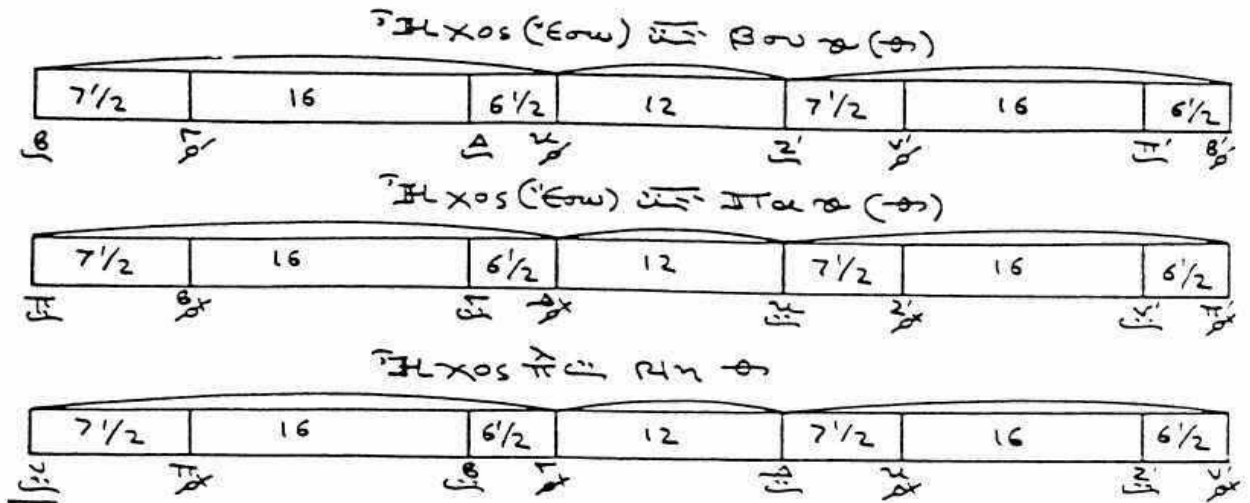 Ἦχος (Ἔσω) Βου
7 1/2 16 6 1/2 12 7 1/2 16 6 1/2
Β Γ Δ κ Ζ' ν' π' Β'
Ἦχος (Ἔσω) Πα
7 1/2 16 6 1/2 12 7 1/2 16 6 1/2
Π Β Γ Δ κ Ζ' ν' π'
Ἦχος Νη
7 1/2 16 6 1/2 12 7 1/2 16 6 1/2
ν Π Β Γ Δ κ Ζ' ν'